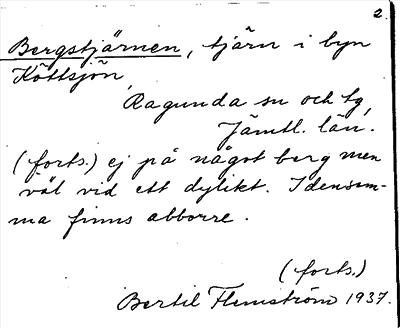 2.
Bergstjärnen, tjärn i byn
Köttsjön,
Ragunda sn och tg,
Jämtl. län.
(forts.) ej på något berg men
väl vid ett dylikt. I densam-
ma finns abborre.
(forts.)
Bertil Flemström 1937.